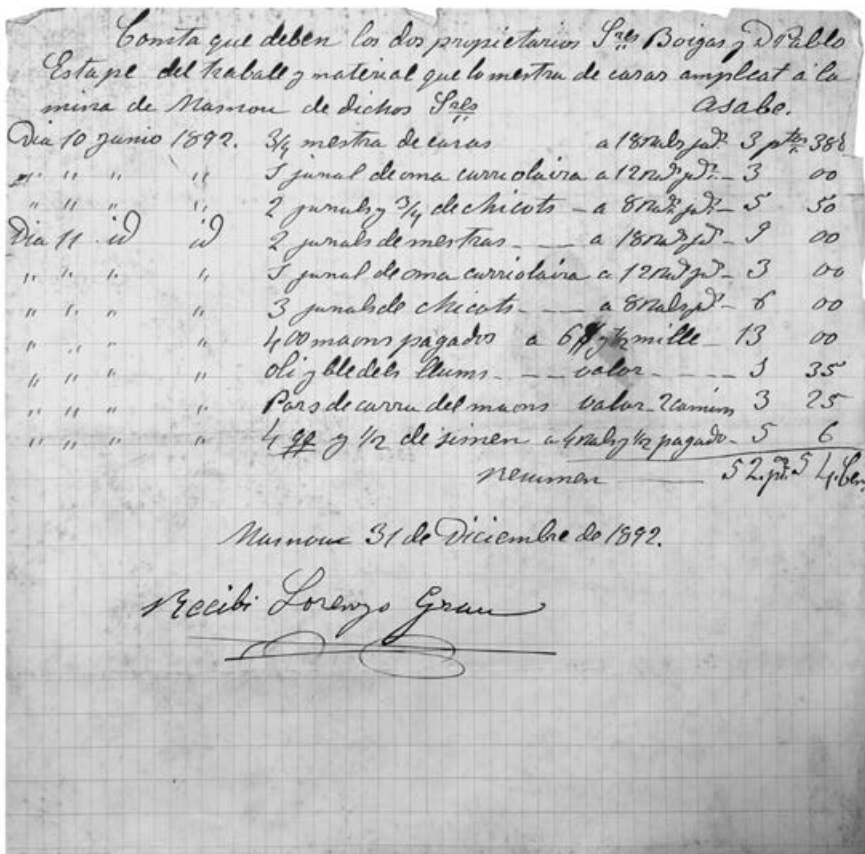 Consta que deben los dos propietarios Sres Boigas y D Pablo
Estape del traball y material que lo mestra de casas ampleat á la
mina de Masnou de dichos Sres asabe.
Dia 10 Junio 1892. 3/4 mestra de casas a 18 rals jal. 3 ptas 38
" " " " 1 junal de oma curriolaira a 12 rals jal. - 3 00
" " " " 2 junals y 3/4 de chicots - a 8 rals jal. - 5 50
Dia 11 id id 2 junals de mestras - a 18 rals jal - 9 00
" " " " 1 junal de oma curriolaira a 12 rals jal - 3 00
" " " " 3 junals de chicots - a 8 rals jal - 6 00
" " " " 400 maons pagados a 6 y 1/2 mille - 13 00
" " " " oli y ble dels llums - valor - 1 35
" " " " Pors de carru del maons valor 2 camins 3 25
" " " " 4 qq y 1/2 de simen a 4 rals y 1/2 pagado - 5 6
resumen 52 pts 54 Cen
Masnou 31 de Diciembre de 1892.
Recibi Lorenzo Grau